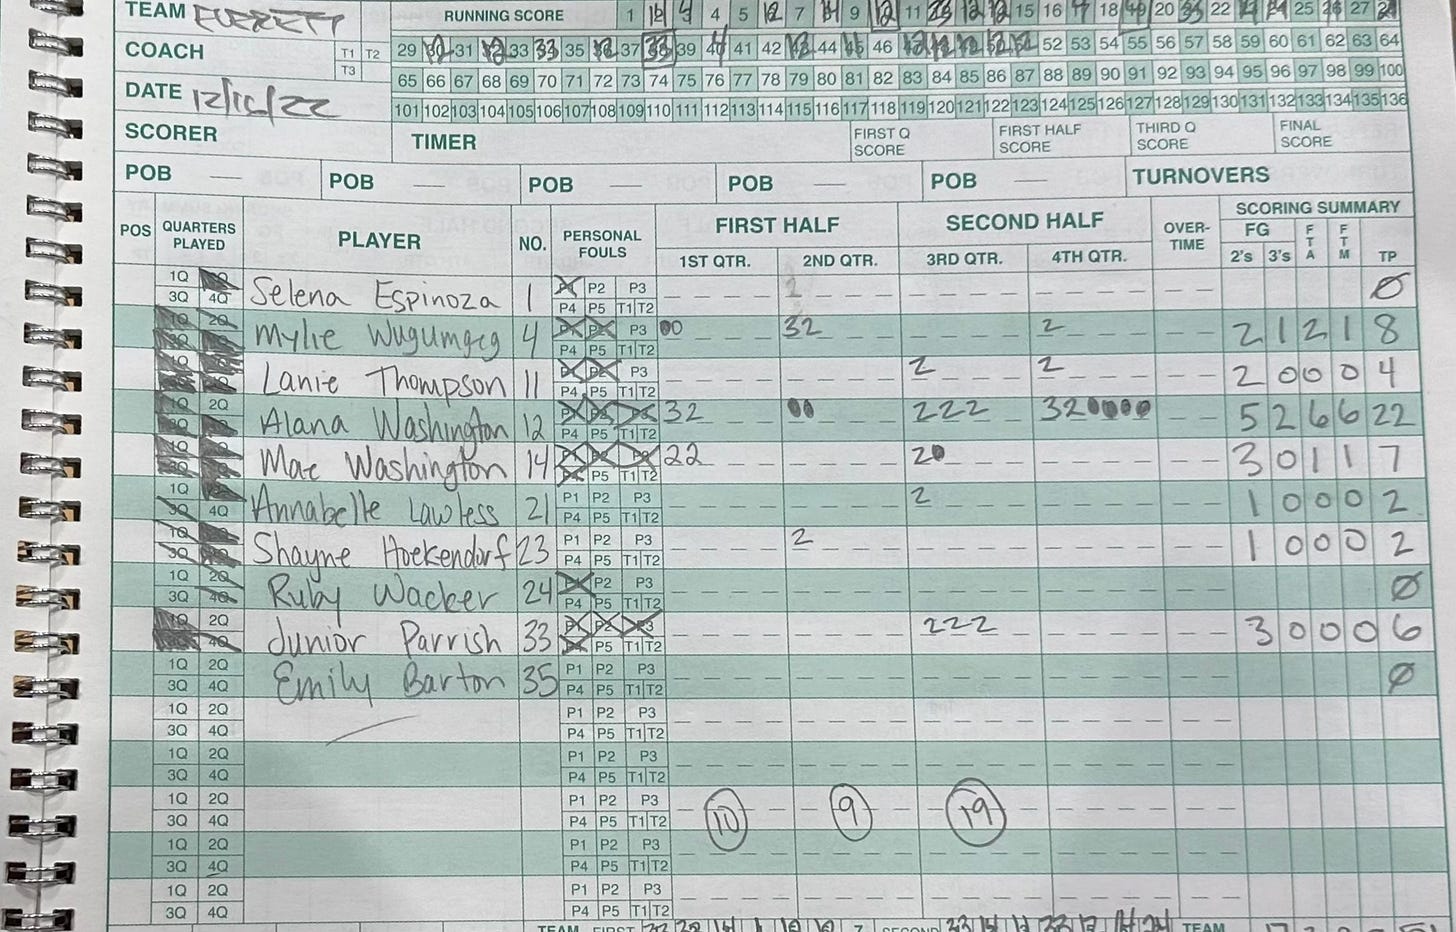 TEAM EVERETT RUNNING SCORE 1 4 5 7 9 11 15 16 18 20 22 25 27
COACH T1 T2 T3 29 31 33 35 37 39 41 42 44 46 52 53 54 55 56 57 58 59 60 61 62 63 64
65 66 67 68 69 70 71 72 73 74 75 76 77 78 79 80 81 82 83 84 85 86 87 88 89 90 91 92 93 94 95 96 97 98 99 100
DATE 12/16/22 101 102 103 104 105 106 107 108 109 110 111 112 113 114 115 116 117 118 119 120 121 122 123 124 125 126 127 128 129 130 131 132 133 134 135 136
SCORER TIMER FIRST Q SCORE FIRST HALF SCORE THIRD Q SCORE FINAL SCORE
POB POB POB POB POB TURNOVERS
POS QUARTERS PLAYED PLAYER NO. PERSONAL FOULS FIRST HALF SECOND HALF OVER-TIME SCORING SUMMARY
1ST QTR. 2ND QTR. 3RD QTR. 4TH QTR. FG 2's 3's FTA FTM TP
1Q 3Q 4Q Selena Espinoza 1 P2 P3 P4 P5 T1 T2 Ø
Mylie 4 P3 P4 P5 T1 T2 00 32 2 2 1 2 1 8
Lanie Thompson 11 P3 P4 P5 T1 T2 2 2 2 0 0 0 4
2Q Alana Washington 12 P4 P5 T1 T2 32 00 222 320000 5 2 6 6 22
Mae Washington 14 P5 T1 T2 22 20 3 0 1 1 7
1Q 3Q 4Q Annabelle Lawless 21 P1 P2 P3 P4 P5 T1 T2 2 1 0 0 0 2
1Q 3Q Shayne Hoekendorf 23 P1 P2 P3 P4 P5 T1 T2 2 1 0 0 0 2
1Q 2Q 3Q 4Q Ruby Wacker 24 P2 P3 P4 P5 T1 T2 Ø
1Q 2Q 4Q Junior Parrish 33 P5 T1 T2 222 3 0 0 0 6
1Q 2Q 3Q 4Q Emily Barton 35 P1 P2 P3 P4 P5 T1 T2 Ø
1Q 2Q P1 P2 P3
3Q 4Q P4 P5 T1 T2
1Q 2Q P1 P2 P3
3Q 4Q P4 P5 T1 T2
1Q 2Q P1 P2 P3
3Q 4Q P4 P5 T1 T2 10 9 19
1Q 2Q P1 P2 P3
3Q 4Q P4 P5 T1 T2
1Q 2Q P1 P2 P3
3Q 4Q P4 P5 T1 T2
TEAM FIRST SECOND TEAM